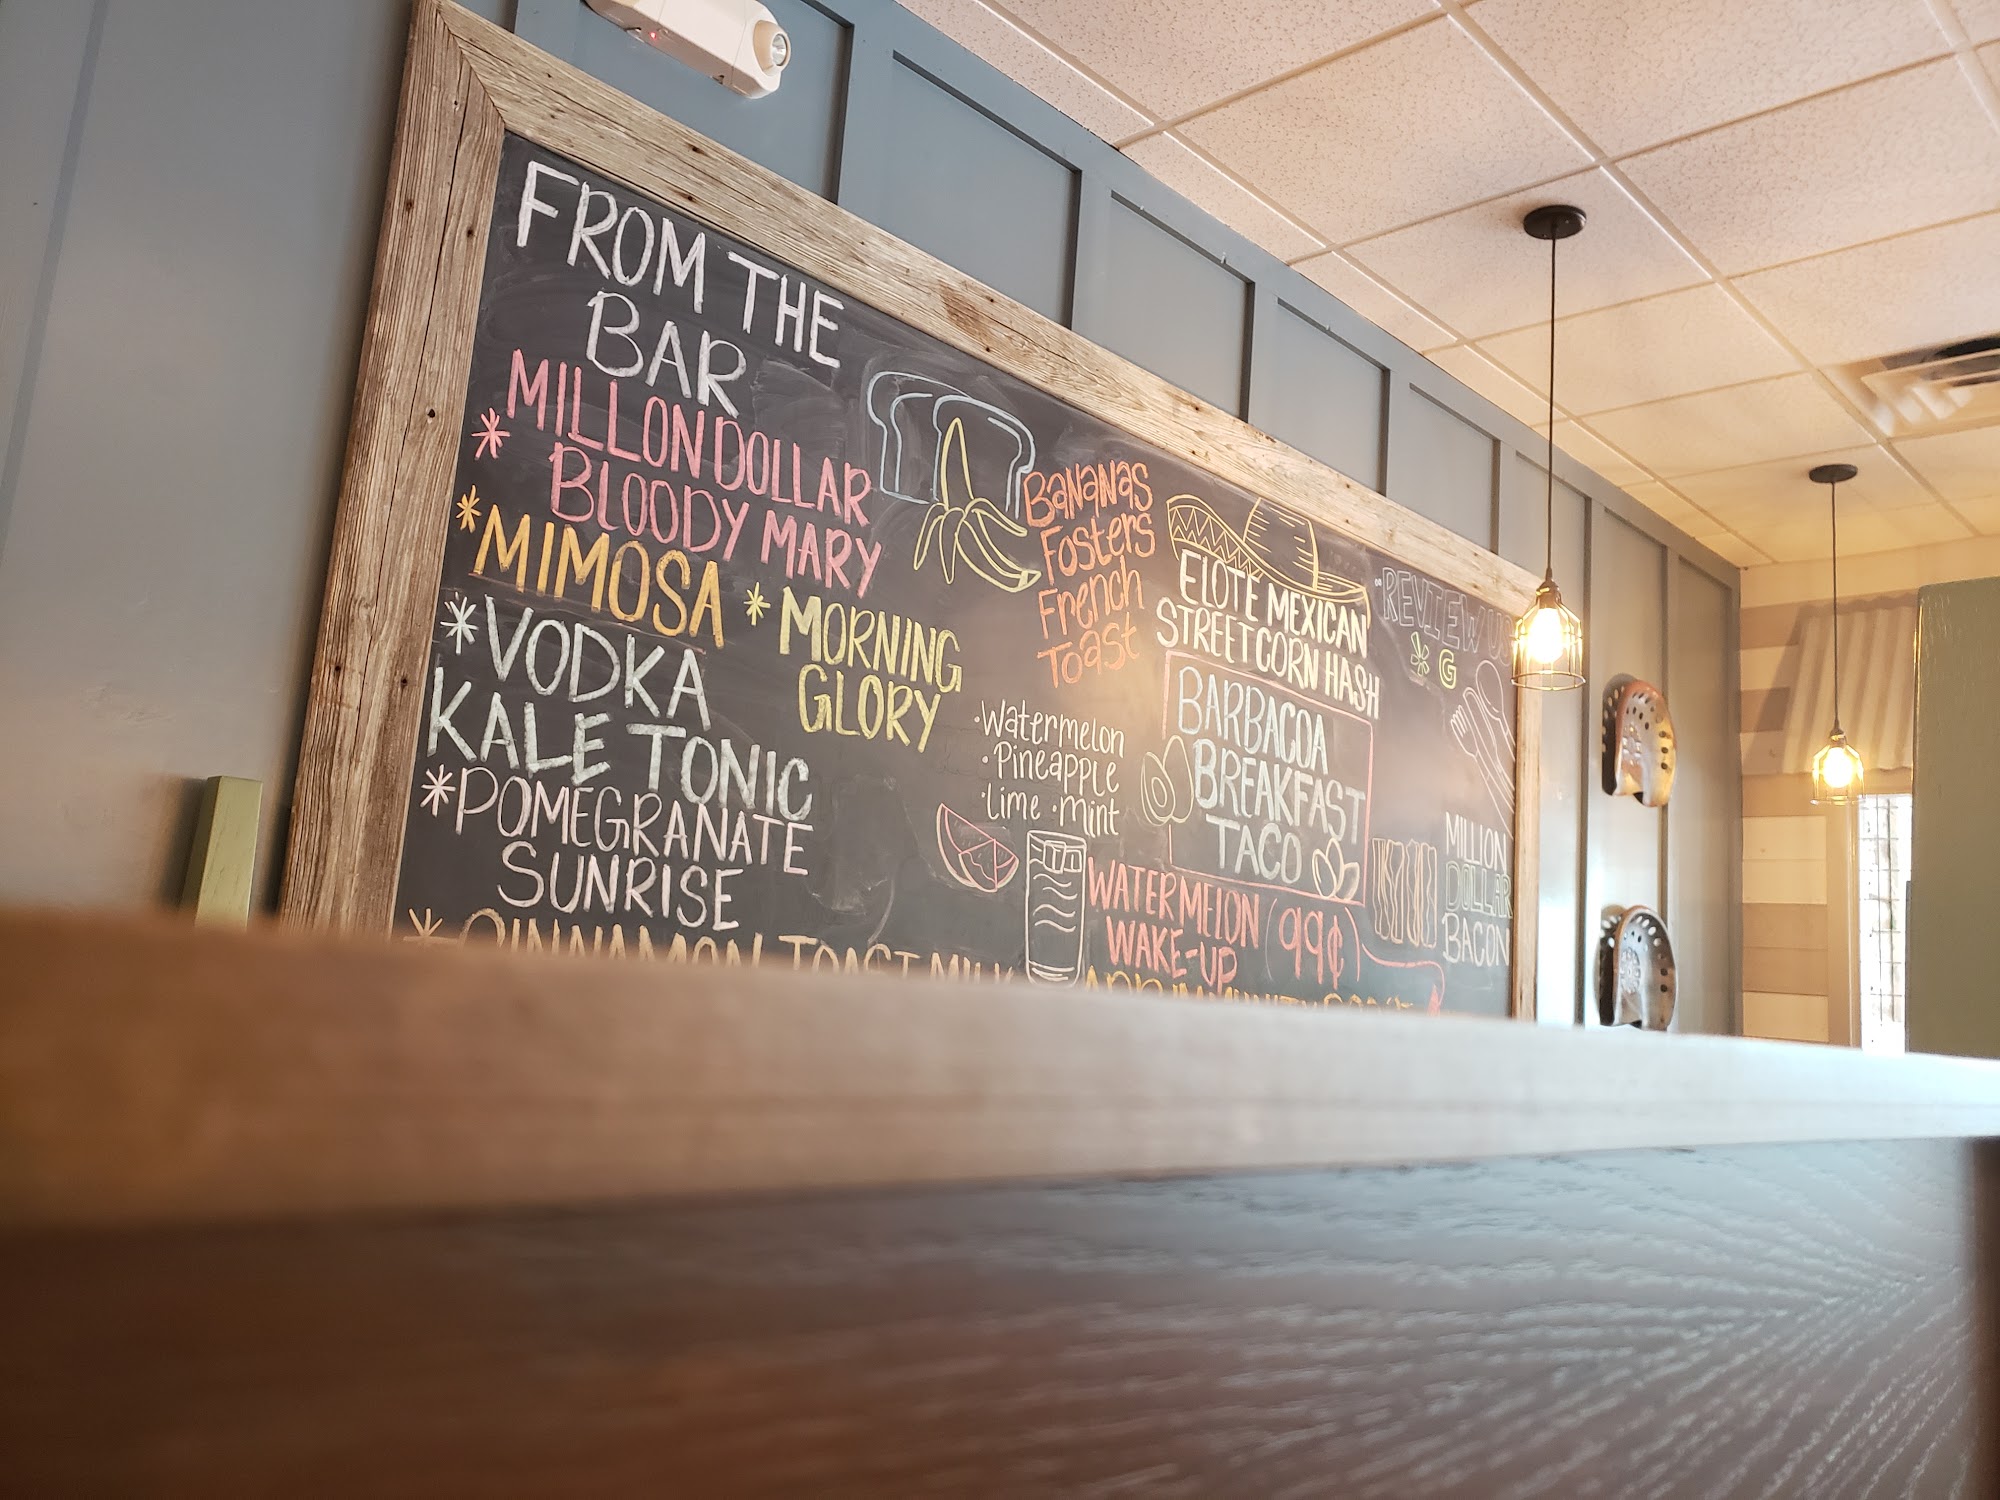 FROM THE
BAR
* MILLON DOLLAR
BLOODY MARY
* MIMOSA
* MORNING
GLORY
* VODKA
KALE TONIC
* POMEGRANATE
SUNRISE
* CINNAMON TOAST MILK
BANANAS
FOSTERS
FRENCH
TOAST
·Watermelon
·Pineapple
·Lime ·Mint
WATERMELON (99¢)
WAKE-UP
ADD IMMUNITY
ELOTE MEXICAN
STREET CORN HASH
BARBACOA
BREAKFAST
TACO
REVIEW US
G
MILLION
DOLLAR
BACON